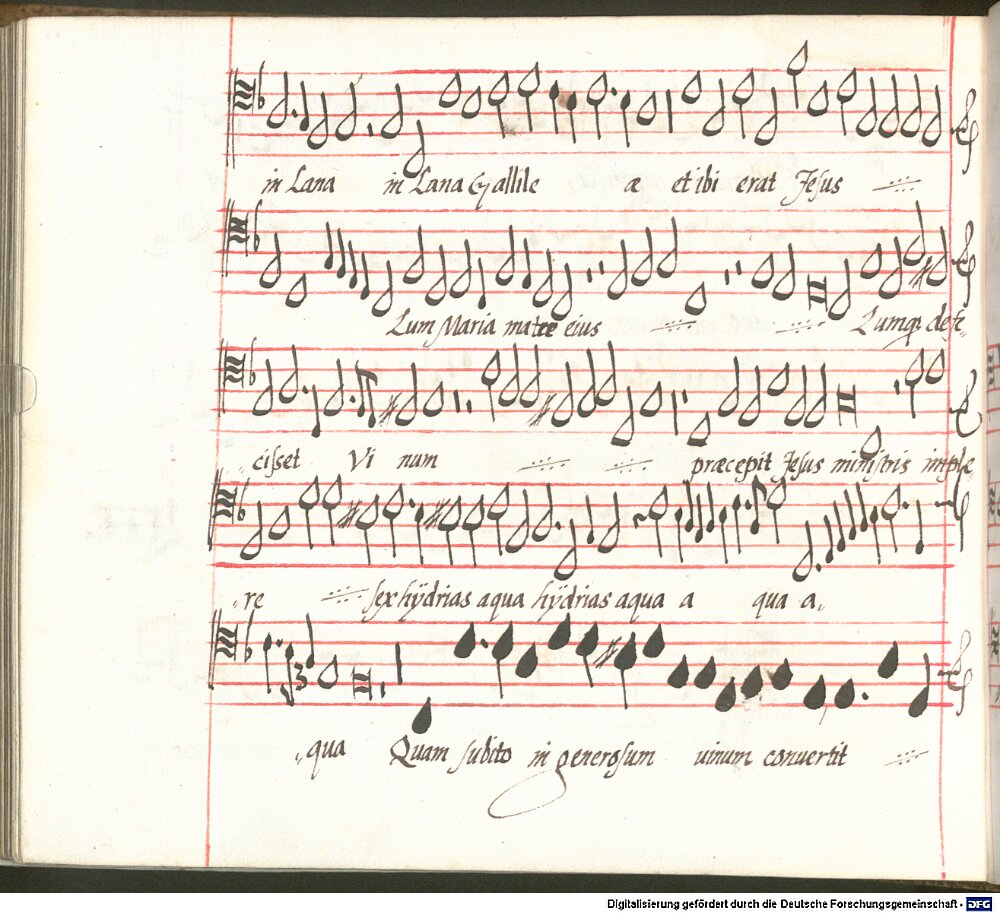 in Cana in Cana Gallile æ et ibi erat Jesus
Cum Maria matre eius Cumq; defe„
cisset Vi num præcepit Jesus ministris imple
„re sex hÿdrias aqua hÿdrias aqua a qua a„
„qua Quam subito in generosum uinum convertit
Digitalisierung gefördert durch die Deutsche Forschungsgemeinschaft - DFG